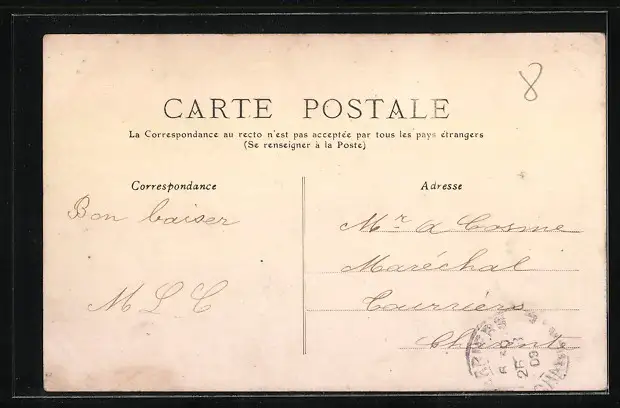 8
CARTE POSTALE
La Correspondance au recto n'est pas acceptée par tous les pays étrangers
(Se renseigner à la Poste)
Correspondance
Bon baiser
M L C
Adresse
Mr a Cosme
Maréchal
Courriére
Charente
25
09